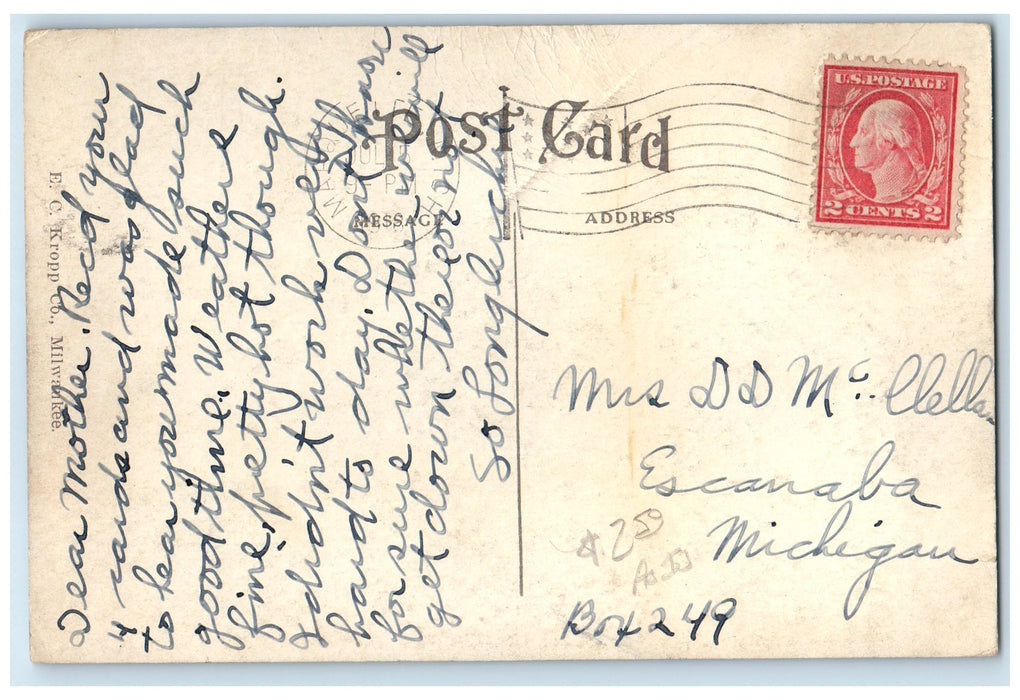 Dear Mother. Recd your
4 cards and was glad
to hear you made such
good time. Weather
fine, petty hot though.
I didn't work very
hard to day. Don't know
for sure whether we will
get down there or not
So Long
E. C. Kropp Co., Milwaukee.
Post Card
MESSAGE
ADDRESS
U.S. POSTAGE
2 CENTS 2
Mrs D D Mc Clella
Escanaba
Michigan
$ 2 50
Box 249